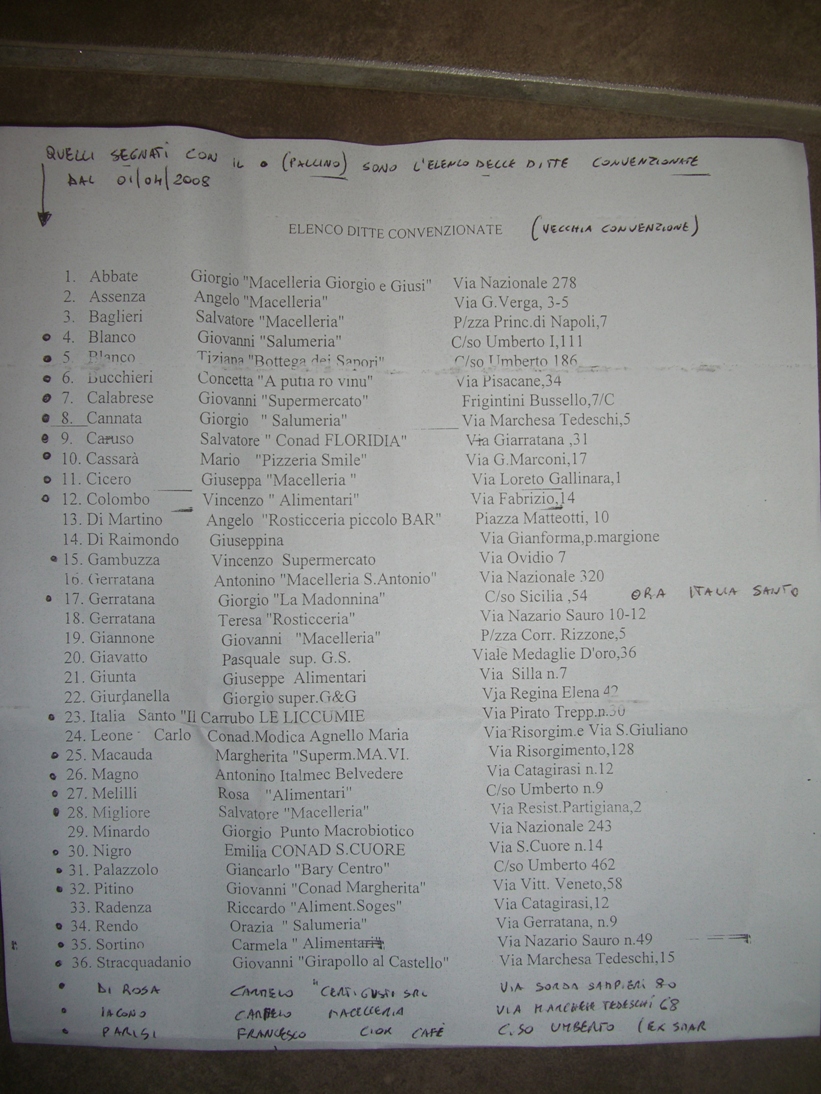 QUELLI SEGNATI CON IL • (PALLINO) SONO L'ELENCO DELLE DITTE CONVENZIONATE
DAL 01/04/2008
ELENCO DITTE CONVENZIONATE (VECCHIA CONVENZIONE)
1. Abbate Giorgio "Macelleria Giorgio e Giusi" Via Nazionale 278
2. Assenza Angelo "Macelleria" Via G.Verga, 3-5
3. Baglieri Salvatore "Macelleria" P/zza Princ.di Napoli,7
• 4. Blanco Giovanni "Salumeria" C/so Umberto I,111
• 5. Blanco Tiziana "Bottega dei Sapori" C/so Umberto 186
• 6. Bucchieri Concetta "A putia ro vinu" Via Pisacane,34
• 7. Calabrese Giovanni "Supermercato" Frigintini Bussello,7/C
• 8. Cannata Giorgio " Salumeria" Via Marchesa Tedeschi,5
• 9. Caruso Salvatore " Conad FLORIDIA" Via Giarratana ,31
• 10. Cassarà Mario "Pizzeria Smile" Via G.Marconi,17
• 11. Cicero Giuseppa "Macelleria " Via Loreto Gallinara,1
• 12. Colombo Vincenzo " Alimentari" Via Fabrizio,14
13. Di Martino Angelo "Rosticceria piccolo BAR" Piazza Matteotti, 10
14. Di Raimondo Giuseppina Via Gianforma,p.margione
• 15. Gambuzza Vincenzo Supermercato Via Ovidio 7
16. Gerratana Antonino "Macelleria S.Antonio" Via Nazionale 320
• 17. Gerratana Giorgio "La Madonnina" C/so Sicilia ,54 ORA ITALIA SANTO
18. Gerratana Teresa "Rosticceria" Via Nazario Sauro 10-12
19. Giannone Giovanni "Macelleria" P/zza Corr. Rizzone,5
20. Giavatto Pasquale sup. G.S. Viale Medaglie D'oro,36
21. Giunta Giuseppe Alimentari Via Silla n.7
22. Giurdanella Giorgio super.G&G Vja Regina Elena
• 23. Italia Santo "Il Carrubo LE LICCUMIE Via Pirato Trepp.n.30
24. Leone Carlo Conad.Modica Agnello Maria Via Risorgim.e Via S.Giuliano
• 25. Macauda Margherita "Superm.MA.VI. Via Risorgimento,128
• 26. Magno Antonino Italmec Belvedere Via Catagirasi n.12
• 27. Melilli Rosa "Alimentari" C/so Umberto n.9
• 28. Migliore Salvatore "Macelleria" Via Resist.Partigiana,2
29. Minardo Giorgio Punto Macrobiotico Via Nazionale 243
• 30. Nigro Emilia CONAD S.CUORE Via S.Cuore n.14
• 31. Palazzolo Giancarlo "Bary Centro" C/so Umberto 462
• 32. Pitino Giovanni "Conad Margherita" Via Vitt. Veneto,58
33. Radenza Riccardo "Aliment.Soges" Via Catagirasi,12
• 34. Rendo Orazia " Salumeria" Via Gerratana, n.9
• 35. Sortino Carmela " Alimentari" Via Nazario Sauro n.49
• 36. Stracquadanio Giovanni "Girapollo al Castello" Via Marchesa Tedeschi,15
• DI ROSA CARMELO "CERTIGUSTI SRL VIA SORDA SAMPIERI 80
• IACONO CARMELO MACELLERIA VIA MARCHESE TEDESCHI 68
• PARISI FRANCESCO CIOK CAFÈ C.SO UMBERTO (EX